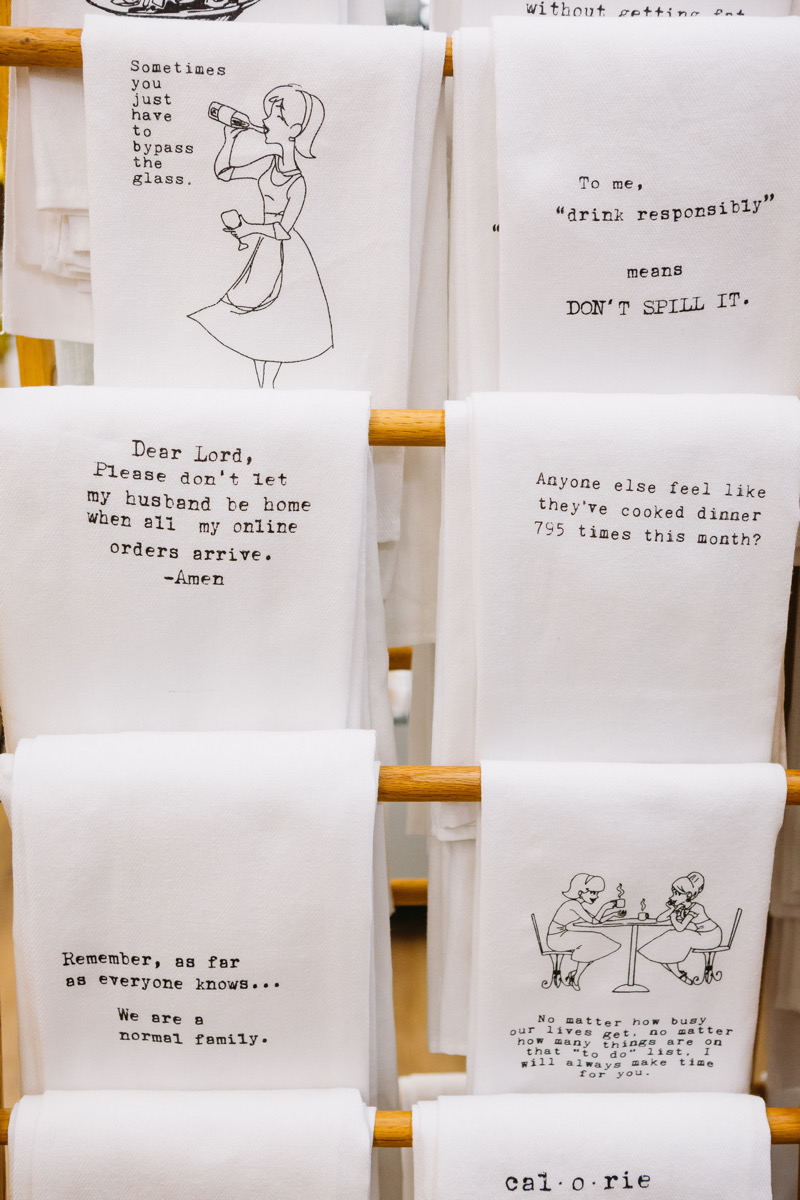 without getting fat
Sometimes
you
just
have
to
bypass
the
glass.
To me,
“drink responsibly”
means
DON'T SPILL IT.
“
Dear Lord,
Please don't let
my husband be home
when all my online
orders arrive.
-Amen
Anyone else feel like
they've cooked dinner
795 times this month?
Remember, as far
as everyone knows...
We are a
normal family.
No matter how busy
our lives get, no matter
how many things are on
that "to do" list, I
will always make time
for you.
cal·o·rie